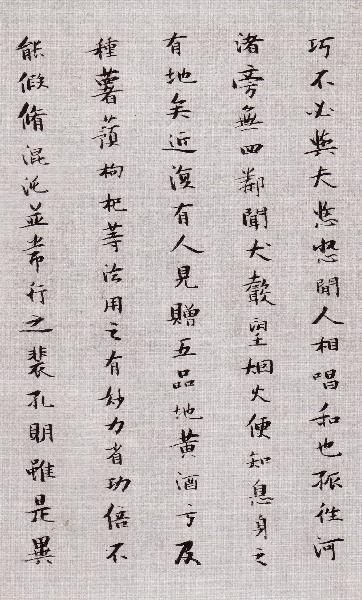 巧不必與夫悠悠閒人相唱和也孤住河
渚旁無四鄰聞犬聲望烟火便知息身之
有地矣近復有人見贈五品地黃酒方及
種薯蕷枸杞等法用之有效力省功倍不
能假脩混沌並常行之裴孔明雖是異